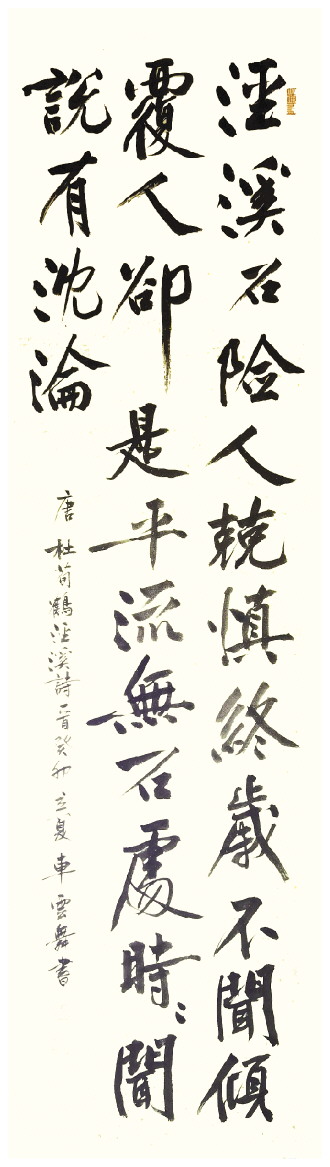 涇溪石險人兢慎終歲不聞傾
覆人卻是平流無石處時〻聞
說有沈淪
唐杜荀鶴涇溪詩一首癸卯立夏車雲舞書